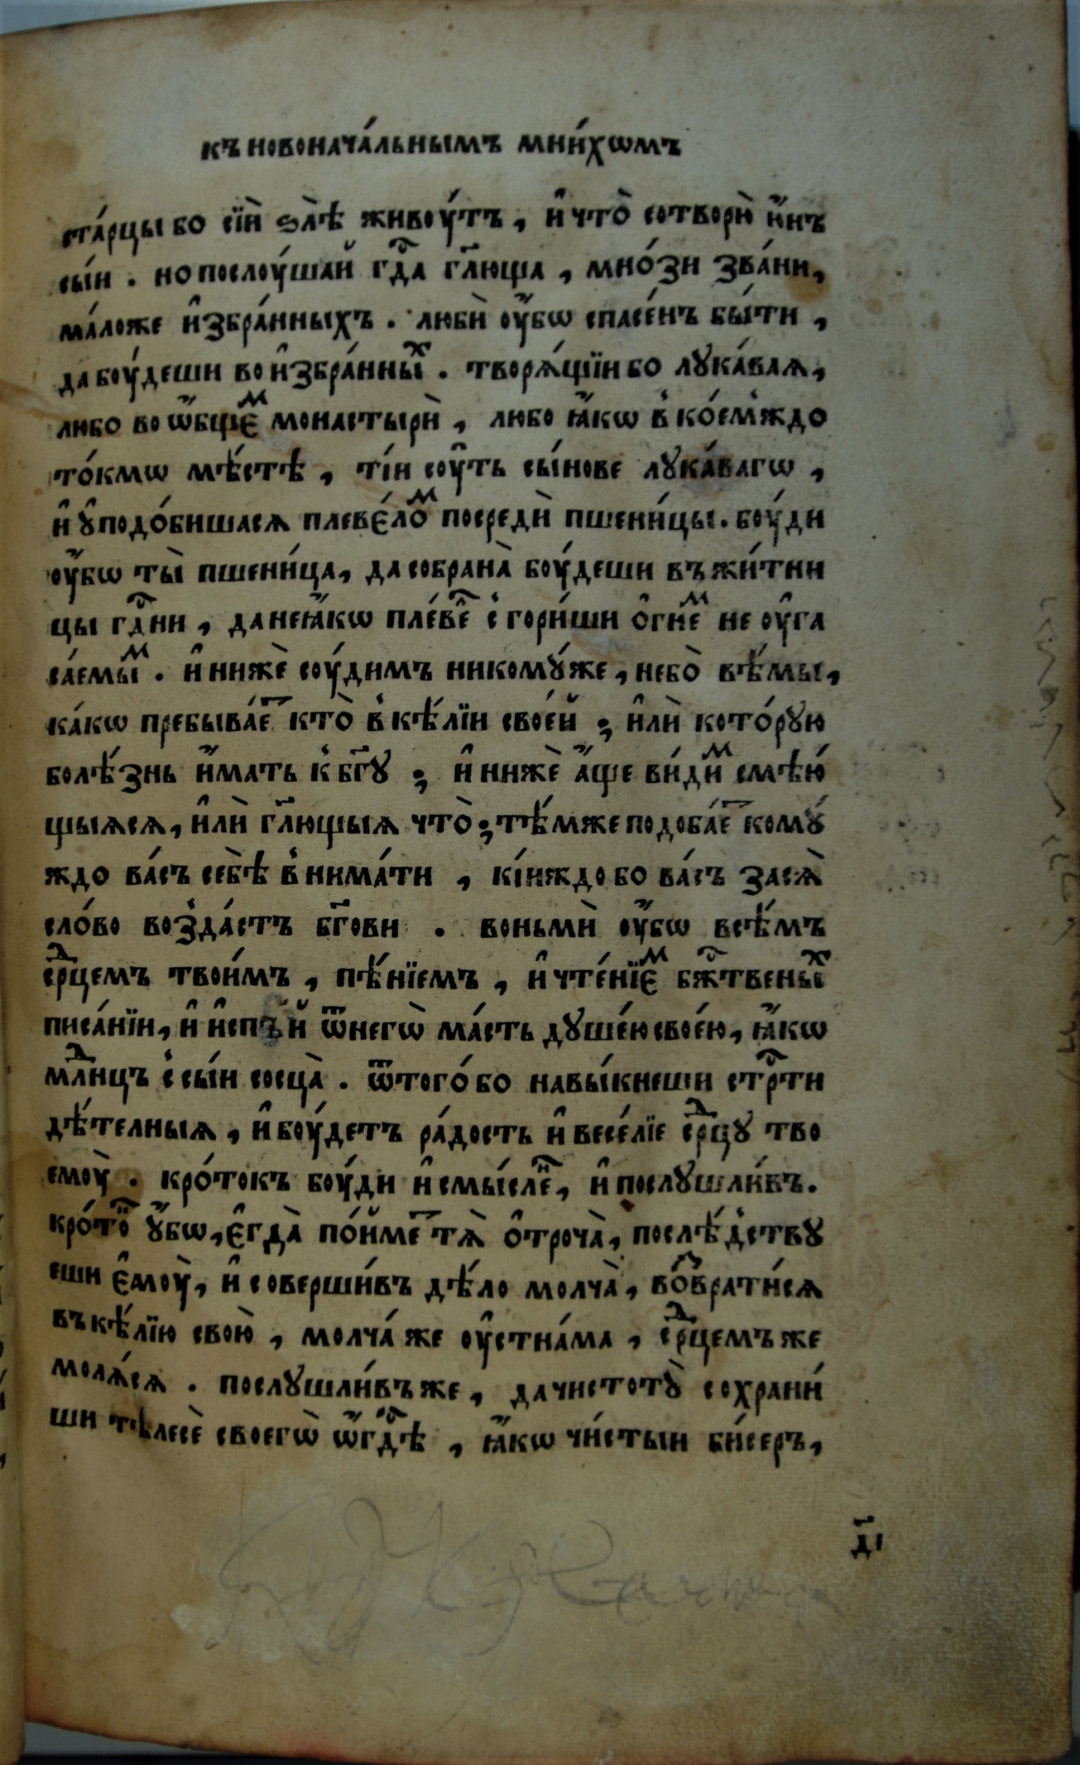 къ новонача́льнымъ мни́хѡмъ
ста́рцы бо сїѝ ѕлѣ̀ живоу́тъ , и҆ что̀ сотворѝ и҆́нъ
сы́и . но послоу́шай гдⷭ҇а гл҃юща , мно́зи зва́ни ,
ма́ложе и҆збра́нныхъ . любѝ оу҆́бѡ спасе́нъ бы́ти ,
да боу́деши во и҆збра́нныⷯ . творѧ́щїи бо лꙋка́ваѧ ,
либо во ѻ҆́бщеⷨ монастырѝ , либо ꙗ҆́кѡ в̾ ко́емⸯждо
то́кмѡ мѣ́стѣ , ті́и соу́ть сы́нове лꙋка́вагѡ ,
и҆ ᲂу҆подо́бишасѧ плеве́лоⷨ посредѝ пшени́цы . боу́ди
оу҆́бѡ ты̀ пшени́ца , да собрана̀ боу́деши въ жи́тни
цы гдⷭ҇ни , да не ꙗ҆́кѡ пле́веⷧ с̾гори́ши о҆гнеⷨ не оу҆га
са́емыⷨ . и҆ нижѐ соу́димъ никомꙋ́же , небо̀ вѣ́мы ,
ка́кѡ пребыва́еⷮ кто̀ в̾ кѣ́лїи свое́й ; и҆лѝ кото́рꙋю
болѣ́знь и҆́мать к̾ бг҃ꙋ ; и҆ нижѐ а҆́ще ви́диⷨ смѣю́
щыѧсѧ , и҆лѝ гл҃ющыѧ что̀ ; тѣ́мже подоба́еⷮ комꙋ́
ждо ва́съ себѣ̀ в̾нима́ти , кі́иждо бо ва́съ засѧ̀
сло́во воз̾да́стъ бг҃ови . воньмѝ оу҆́бѡ всѣ́мъ
срⷣцемъ твои́мъ , пѣ́нїемъ , и҆ чте́нїеⷨ бжⷭ҇твеныⷯ
писа́нїи , и҆ и҆спѣ́й ѿ негѡ̀ ма́сть дꙋше́ю свое́ю , ꙗ҆́кѡ
млⷣнцъ с̾сы́и сосца̀ . ѿ того́ бо навы́кнеши стрⷭ҇ти
дѣ́телныѧ , и҆ боу́детъ ра́дость и҆ весе́лїе срⷣцꙋ тво
емоу̀ . кро́токъ боу́ди и҆ смы́слеⷩ҇ , и҆ послꙋшли́въ .
кро́тоⷦ ᲂу҆́бѡ , є҆гда̀ по́ймеⷮ тѧ̀ о҆троча̀ , послѣ́д̾ствꙋ
еши є҆моу̀ , и҆ соверши́въ дѣ́ло молча̀ , воⷥврати́сѧ
въ кѣ́лїю свою̀ , молча́ же оу҆стна́ма , срⷣцемъ же
молѧ́сѧ . послꙋшли́въ же , да чистотꙋ̀ сохрани́
ши тѣлесѐ своегѡ̀ ѻ҆гⷣѣ , ꙗ҆́кѡ чи́стыи би́серъ ,
д҃і